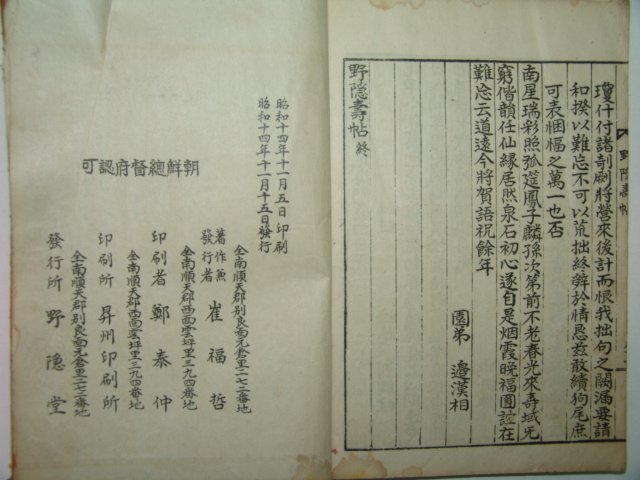 瓊什付諸剞劂將營來後計而恨我拙句之闕漏要請
和揆以難忘不可以荒拙終辞於情忌玆敢續狗尾庶
可表悃愊之萬一也否
南星瑞彩照弧筵鳳子麟孫次第前不老春光來壽域无
窮偕韻任仙緣居然泉石初心遂自是烟霞晚福圓
難忘云道遠今將賀語祝餘年
園弟 邊漢相
野隐壽帖 終
昭和十四年十一月五日印刷
昭和十四年十一月十五日發行
朝鮮總督府認可
全南順天郡別良面元倉里二七二番地
著作兼發行者 崔福哲
全南順天郡西面雲坪里三九四番地
印刷者 鄭泰仲
全南順天郡西面雲坪里三九四番地
印刷所 昇州印刷所
全南順天郡別良面元倉里二七二番地
發行所 野隐堂